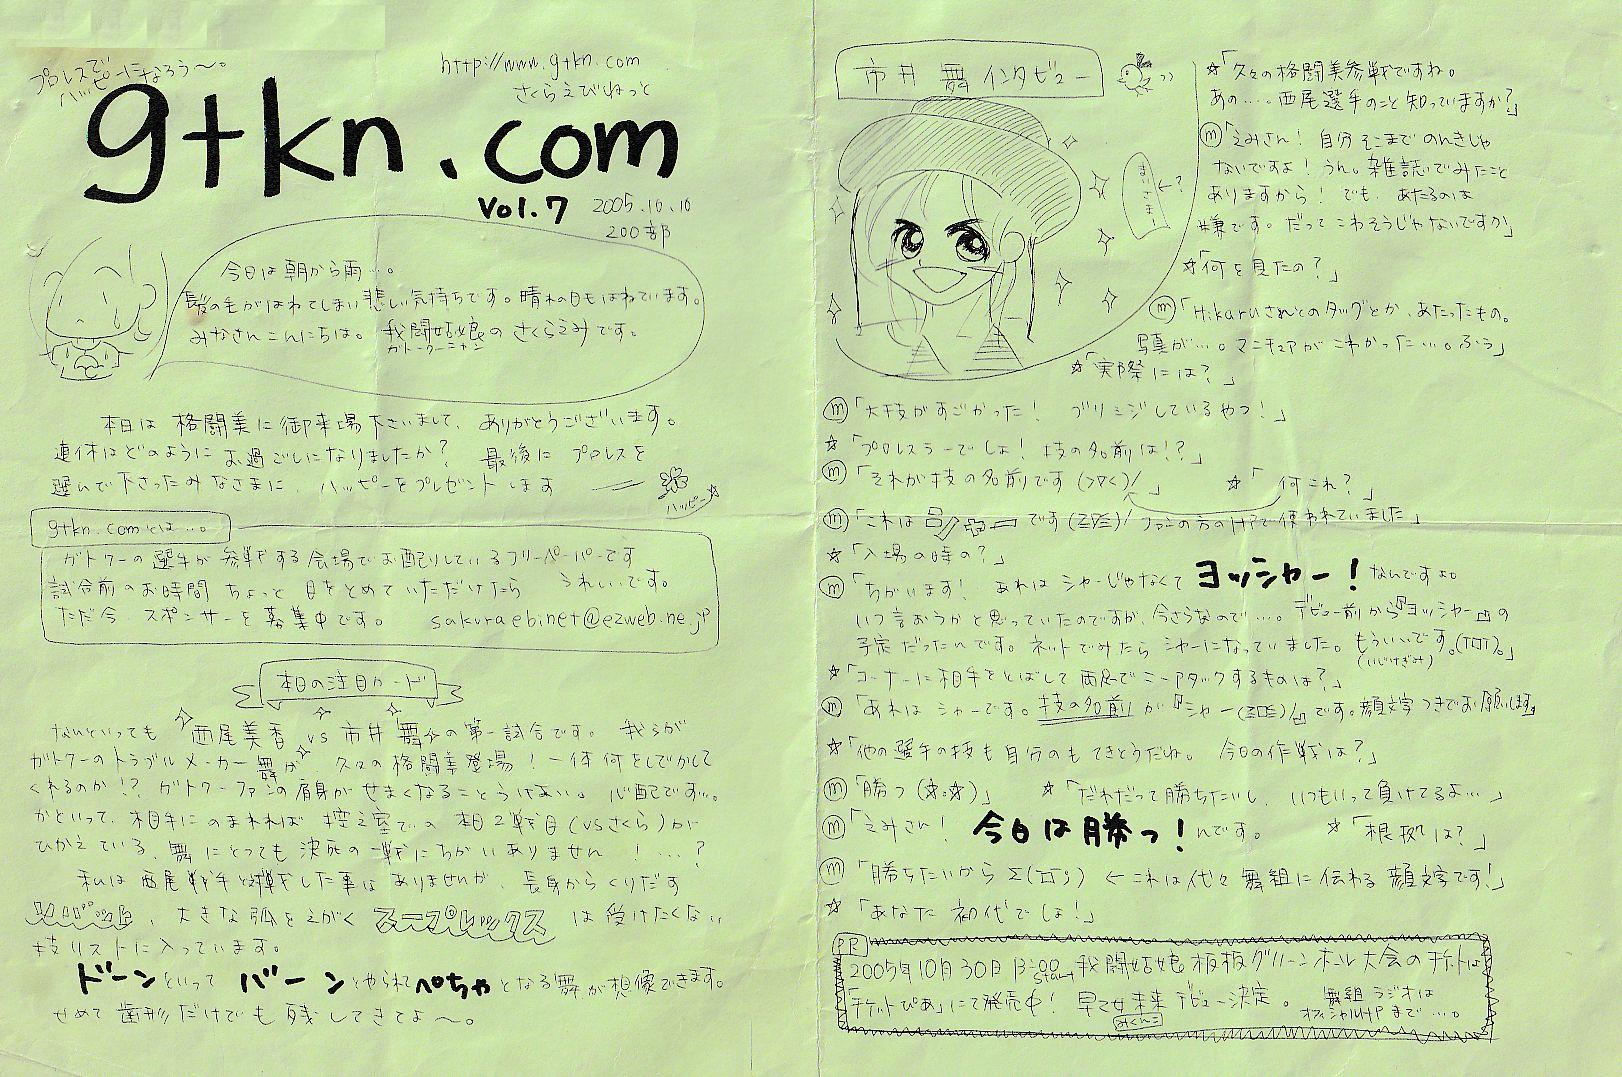 プロレスで
ハッピーになろう〜。
http://www.gtkn.com
さくらえびねっと
gtkn.com
Vol.7 2005.10.10
200部
今日は朝から雨…。
髪の毛がはねてしまい悲しい気持ちです。晴れの日もはねています。
みなさんこんにちは。我闘姑娘のさくらえみです。
ガトークーニャン
本日は格闘美に御来場下さいまして、ありがとうございます。
連休はどのようにお過ごしになりましたか? 最後にプロレスを
選んで下さったみなさまに、ハッピーをプレゼントします
ハッピー☆
gtkn.comとは…。
ガトクーの選手が参戦する会場でお配りしているフリーペーパーです
試合前のお時間ちょっと目をとめていただけたら うれしいです。
ただ今、スポンサーを募集中です。 sakuraebinet@ezweb.ne.jp
本日の注目カード
なんといっても 西尾美香 vs 市井舞の第一試合です。我らが
ガトクーのトラブルメーカー舞が 久々の格闘美登場!一体何をしでかして
くれるのか!? ガトクーファンの肩身がせまくなることうけあい。心配です…。
かといって、相手にのまれれば 控え室での本日2戦目(vsさくら)が
ひかえている、舞にとっても決死の一戦にちがいありません!…?
私は西尾選手と対戦した事はありませんが、長身からくりだす
、大きな弧をえがく スープレックス は受けたくない
技リストに入っています。
ドーンといって バーンとやられてペちゃとなる舞が想像できます。
せめて歯形だけでも残してきてよ〜。
市井舞インタビュー
まいさま!
←?
☆「久々の格闘美参戦ですね。
あの…。西尾選手のこと知っていますか?」
ⓜ「えみさん!自分そこまでのんきじゃ
ないですよ!うん。雑誌でみたこと
ありますから!でも、あたるのは
嫌です。だってこわそうじゃないですか」
☆「何を見たの?」
ⓜ「Hikaruさんとのタッグとか、あたったもの。
写真が…。マニキュアがこわかった…。ふぅ」
☆「実際には?」
ⓜ「大技がすごかった! ブリッジしているやつ!」
☆「プロレスラーでしょ!技の名前は!?」
ⓜ「それが技の名前です(>▽<)/」 ☆「何これ?」
ⓜ「これは です(≧▽≦)/ファンの方のHPで使われていました」
☆「入場の時の?」
ⓜ「ちがいます! あれはシャーじゃなくて ヨッシャー! なんですよ。
いつ言おうかと思っていたのですが、今さらなので…。デビュー前から『ヨッシャー』の
予定だったんです。ネットでみたらシャーになっていました。もういいです。(ToT)。」
(いじけぎみ)
☆「コーナーに相手をとばして両足でニーアタックするものは?」
ⓜ「あれはシャーです。技の名前が『シャー(≧□≦)/』です。顔文字つきでお願いします」
☆「他の選手の技も自分のもてきとうだね。今日の作戦は?」
ⓜ「勝つ(☆。☆)」 ☆「だれだって勝ちたいし、いつもいって負けてるよ…」
ⓜ「えみさん! 今日は勝つ! んです。 ☆「根拠は?」
ⓜ「勝ちたいから ←これは代々舞組に伝わる顔文字です!」
☆「あなた初代でしょ!」
PR
2005年10月30日 13:00 start 我闘姑娘板橋グリーンホール大会のチケットは
「チケットぴあ」にて発売中! 早乙女未来デビュー決定。 舞組ラジオは
みくんこ
オフィシャルHPまで…。